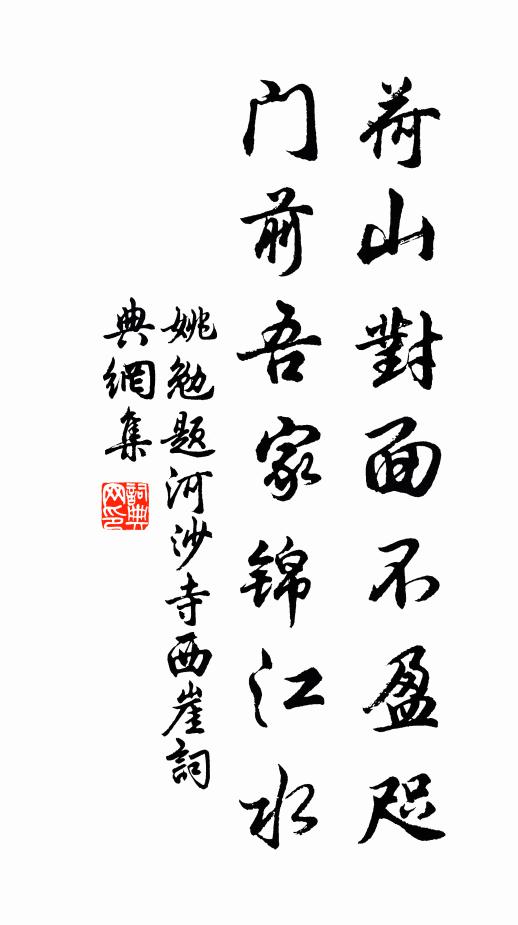 荷山對面不盈咫
门前吾家锦江水
姚勉题河沙寺西崖詞
典網集
詞典网印